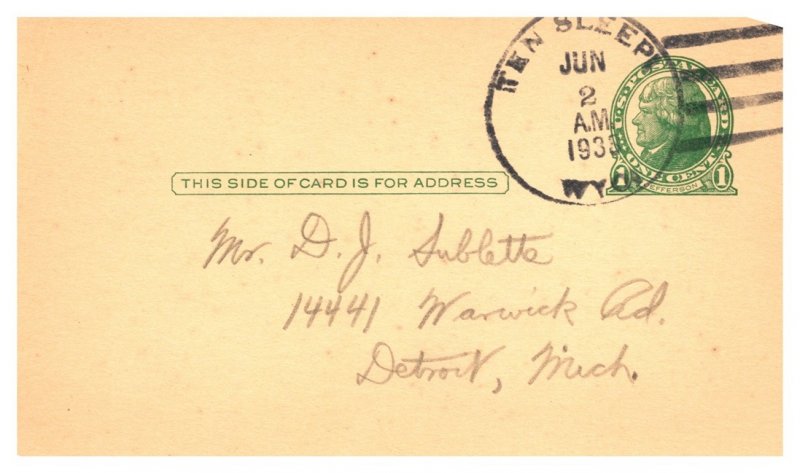 TEN SLEEP
JUN
2
A.M.
WYO
U.S. POSTAL CARD
ONE CENT
1 JEFFERSON 1
THIS SIDE OF CARD IS FOR ADDRESS
Mr. D. J. Sublette
14441 Warwick Rd.
Detroit, Mich.